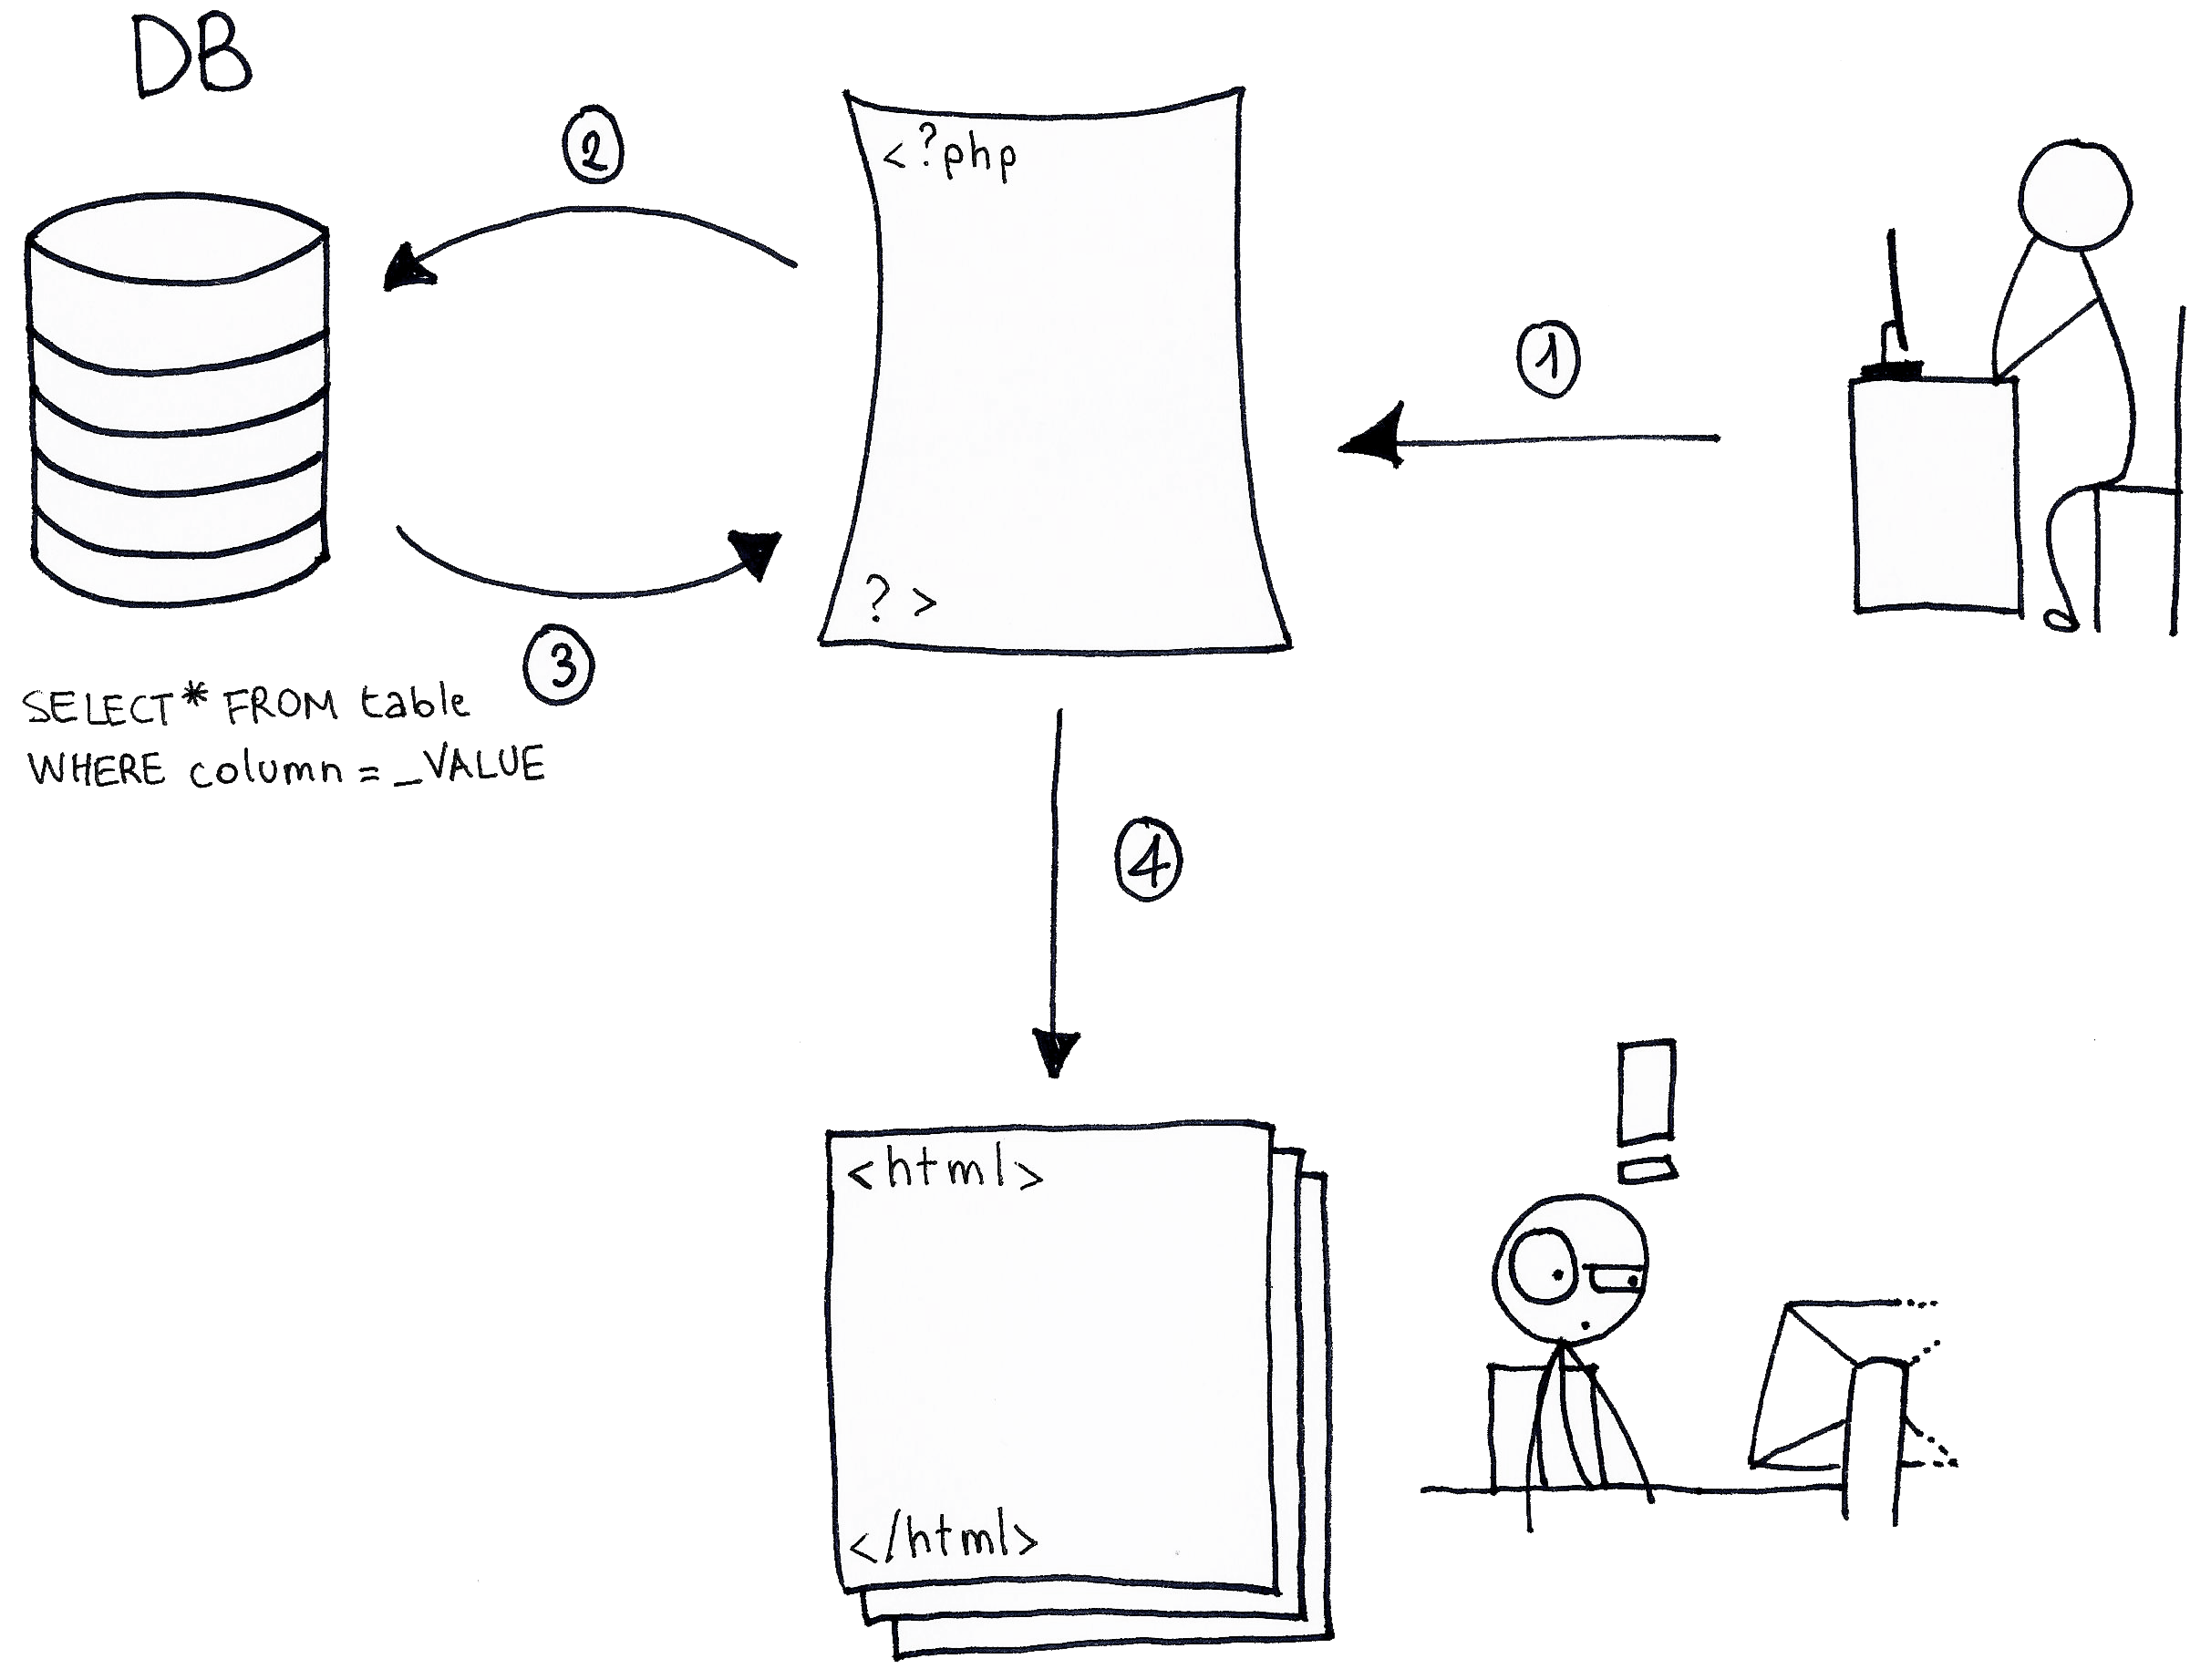 DB
2
<?php
1
? >
3
SELECT* FROM table
WHERE column = _VALUE
4
<html>
</html>